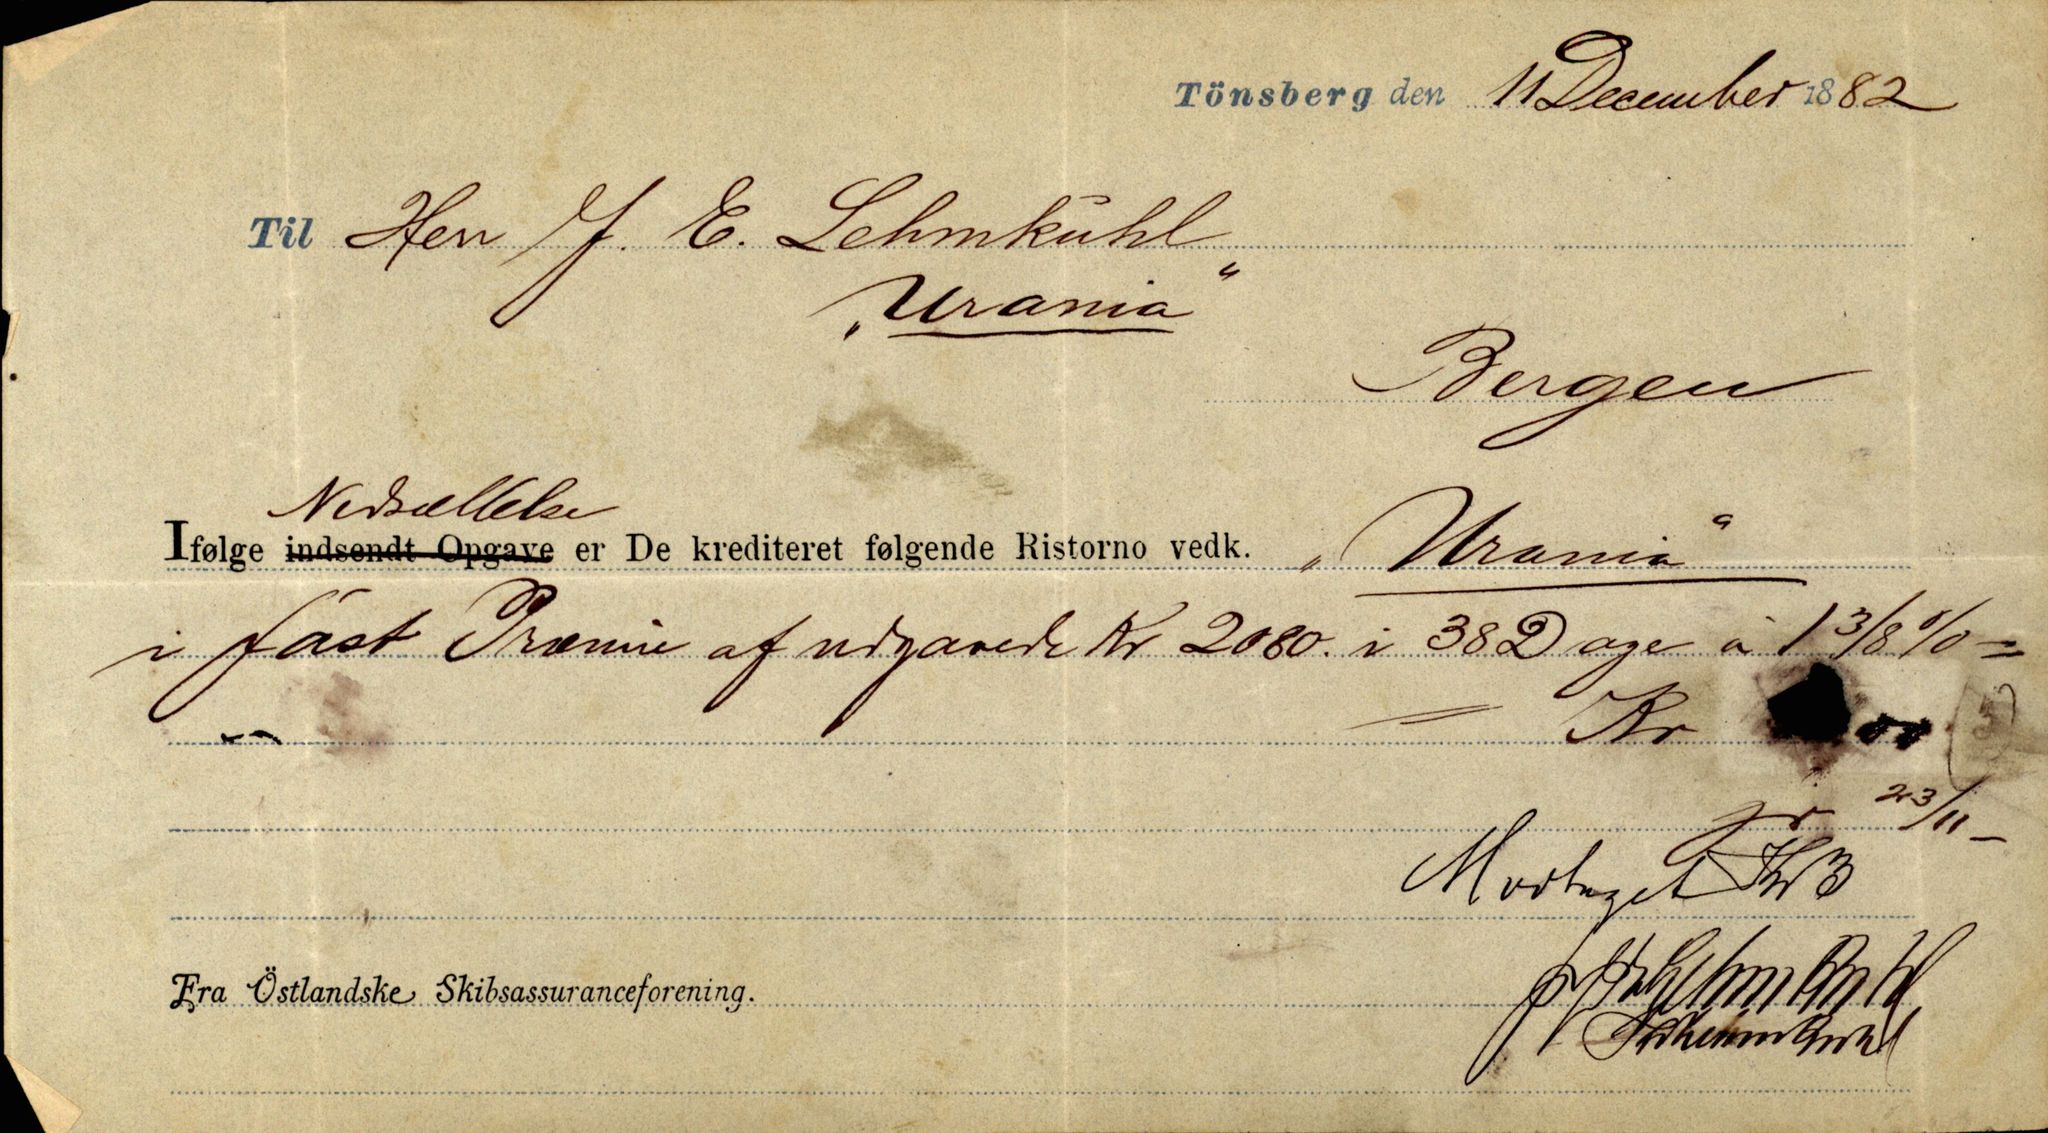 Tönsberg den 11 December 1882
Til Herr J. E. Lehmkuhl
„Urania“
Bergen
Nedsættelse
Ifølge indsendt Opgave er De krediteret følgende Ristorno vedk. „Urania“
i fast Præmie af udgavede Kr 2080. i 382 age à 1 3/8 % =
= Kr
pr 23/11 –
Modtaget Kr 3
Lehmkuhl
Fra Östlandske Skibsassuranceforening.